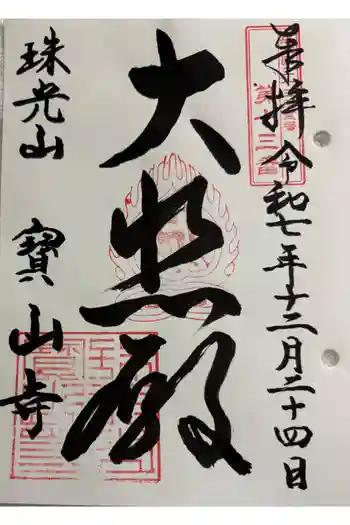 奉拝 令和七年十二月二十四日
大悲殿
珠光山 寶山寺